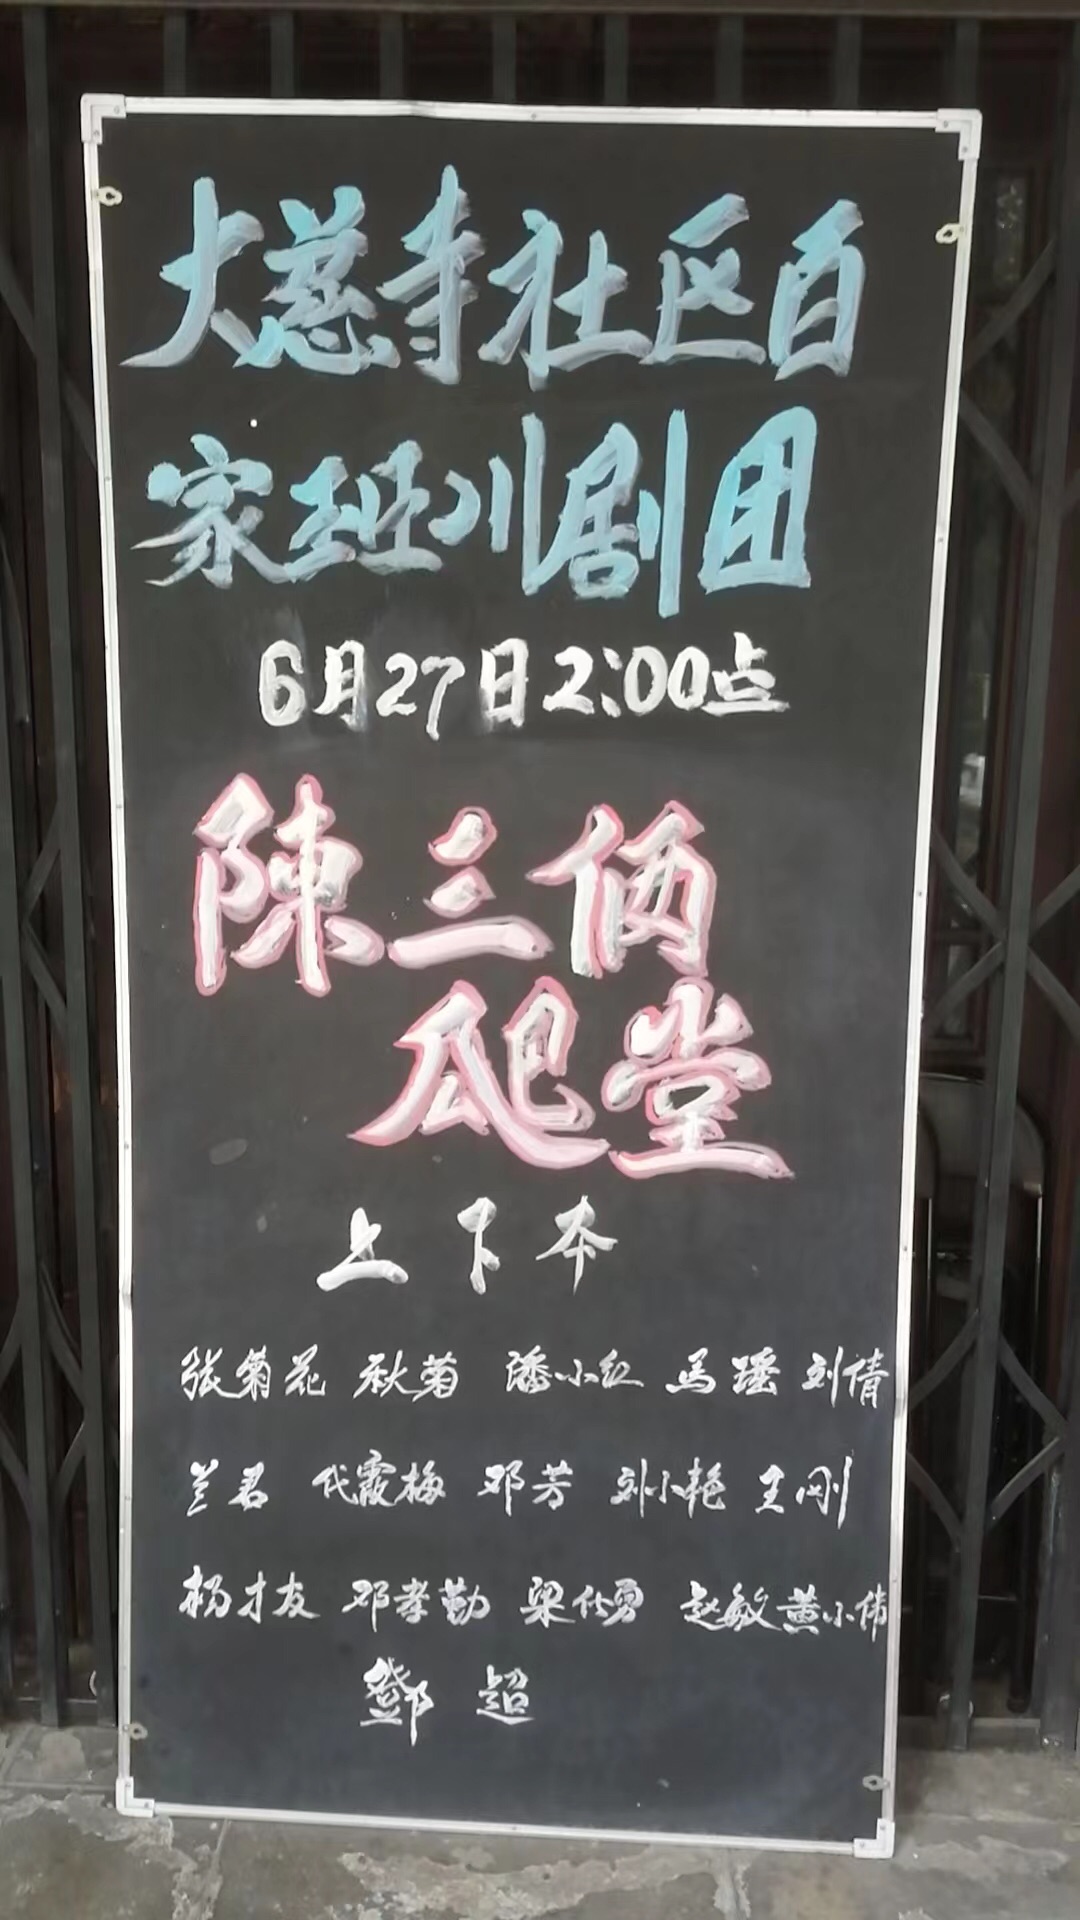 大慈寺社区百
家班川剧团
6月27日2:00点
陳三俩
爬堂
上下本
张菊花 秋菊 潘小红 马瑶 刘倩
兰君 代霞梅 邓芳 刘小艳 王刚
杨才友 邓孝勤 梁仕勇 赵敏 黄小伟
鄧超